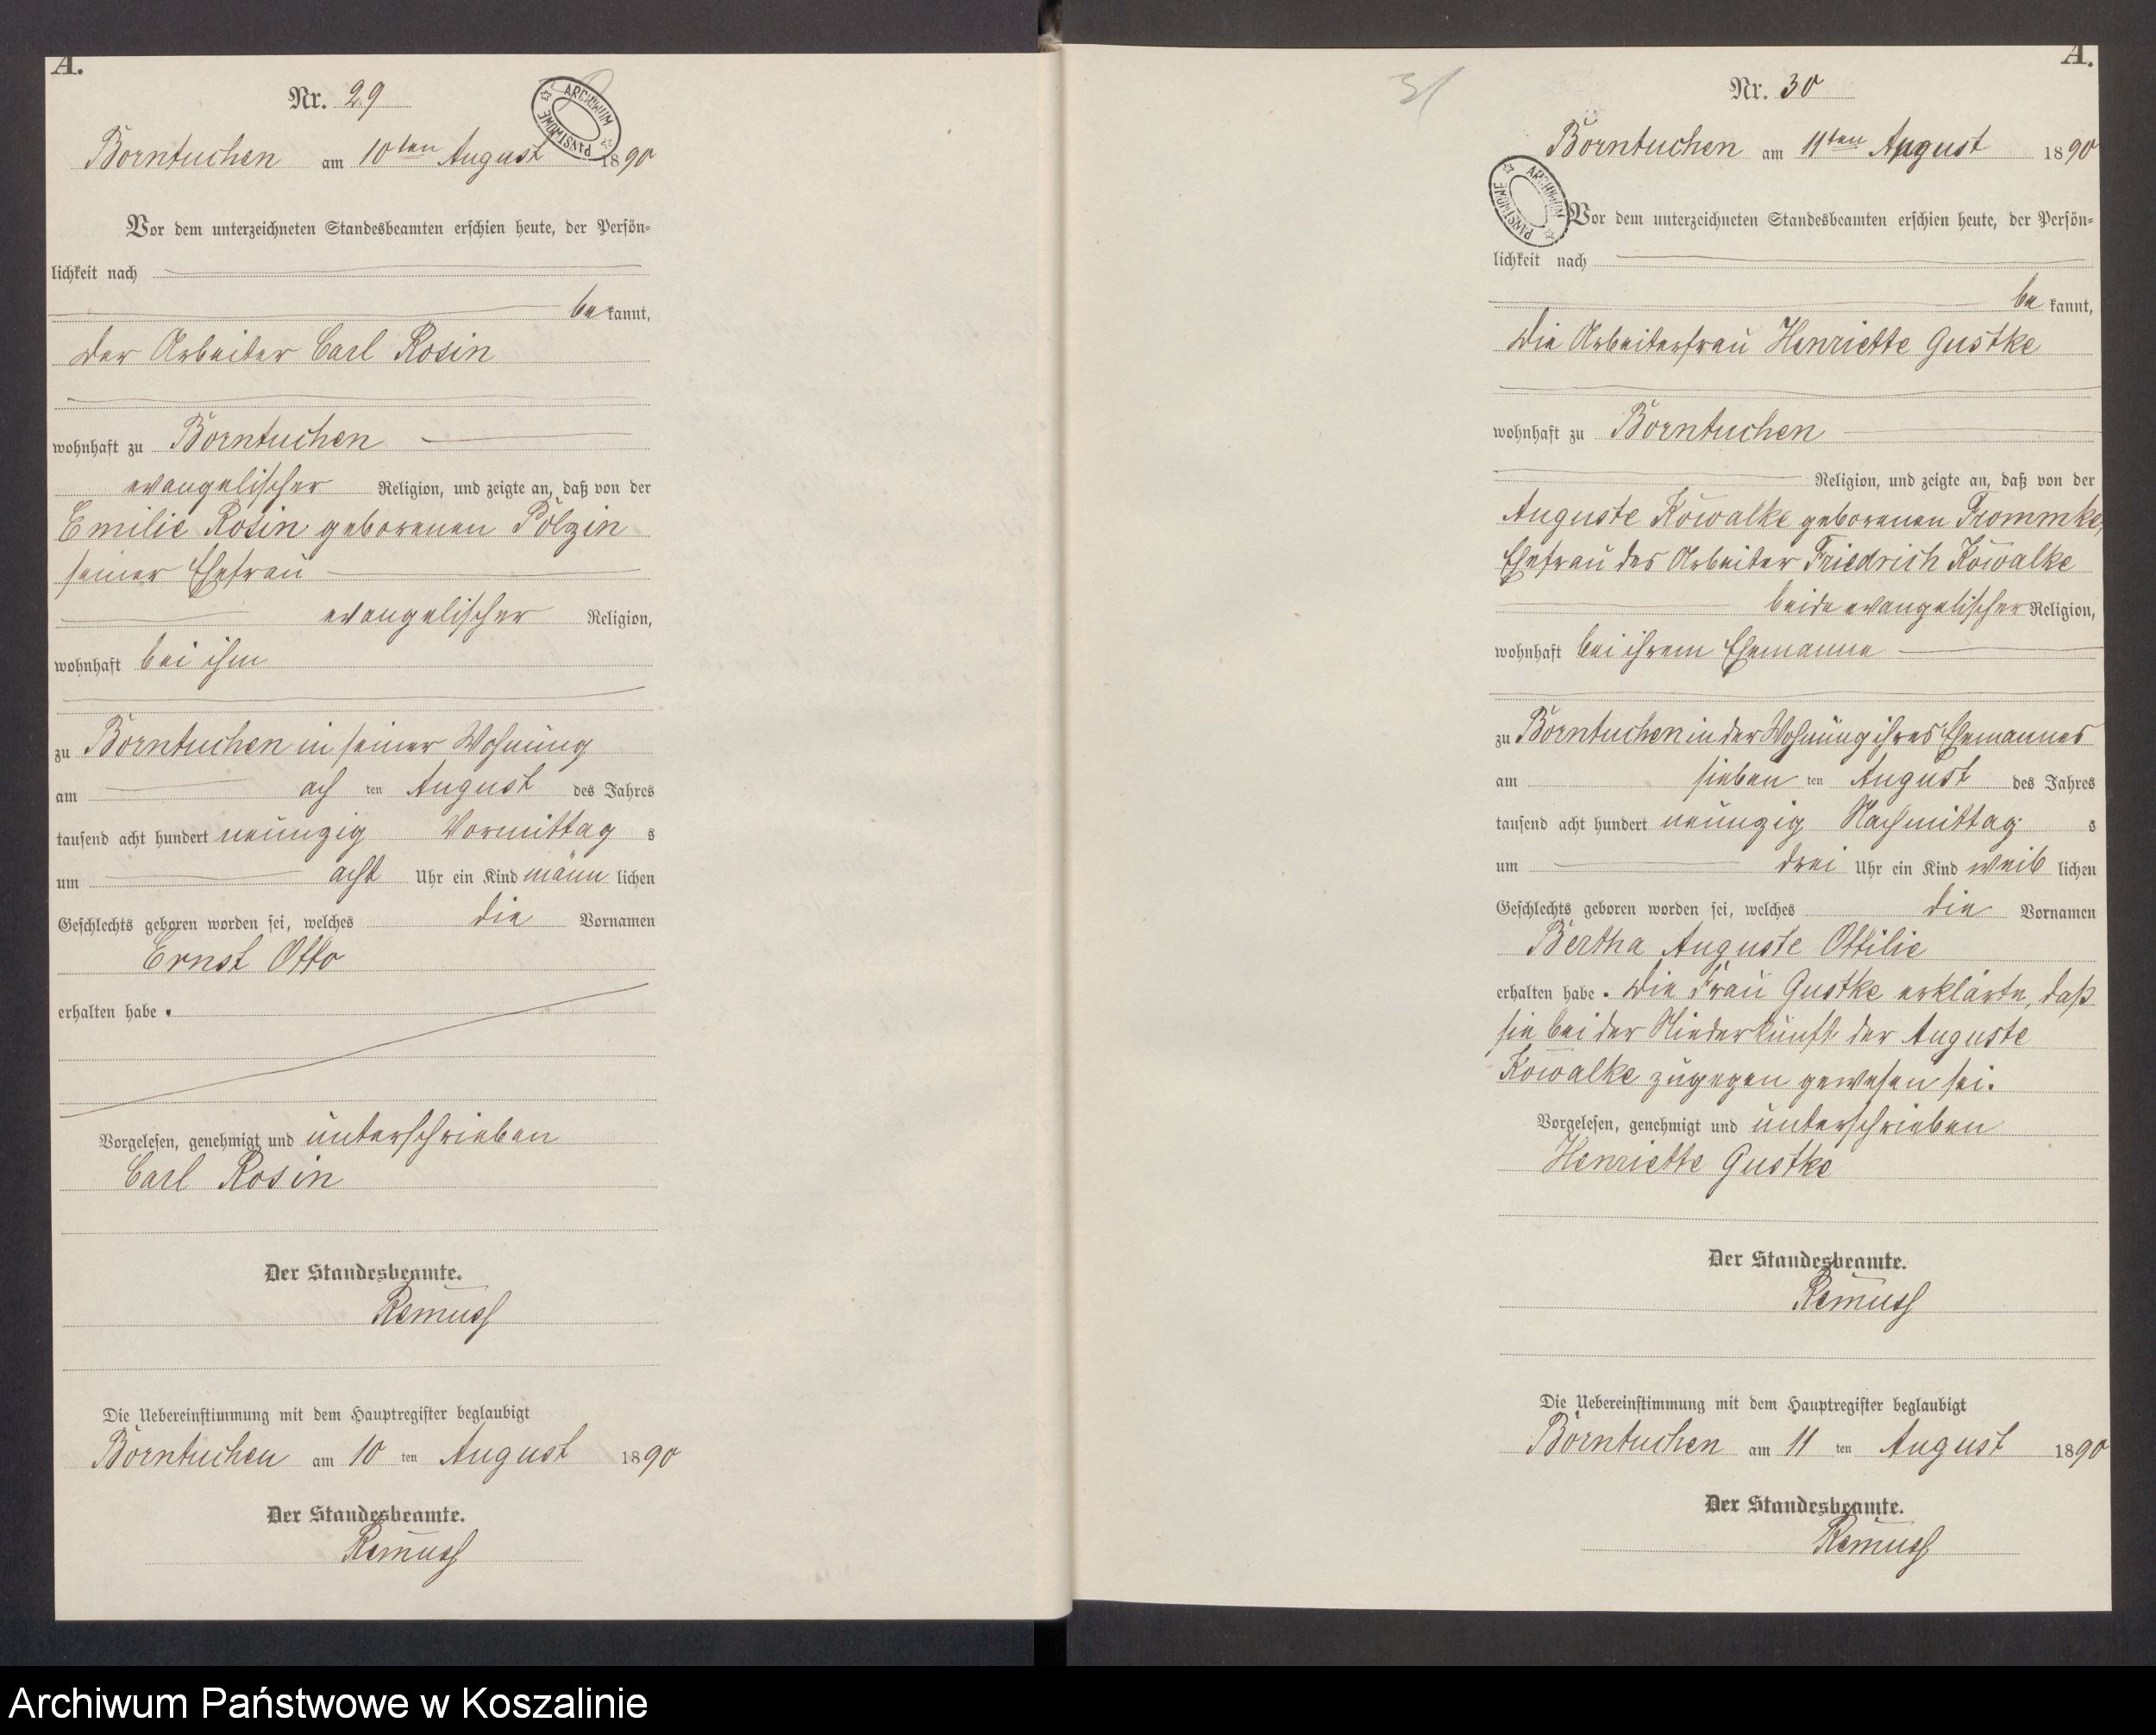 A.
Nr. 29
ARCHIWUM PAŃSTWOWE
Borntuchen am 10ten August 1890
Vor dem unterzeichneten Standesbeamten erschien heute, der Persön-
lichkeit nach
be kannt,
der Arbeiter Carl Rosin
wohnhaft zu Borntuchen
evangelischer Religion, und zeigte an, daß von der
Emilie Rosin geborenen Polzin
seiner Ehefrau
evangelischer Religion,
wohnhaft bei ihm
zu Borntuchen in seiner Wohnung
am ach ten August des Jahres
tausend acht hundert neunzig Vormittag s
um acht Uhr ein Kind männ lichen
Geschlechts geboren worden sei, welches die Vornamen
Ernst Otto
erhalten habe.
Vorgelesen, genehmigt und unterschrieben
Carl Rosin
Der Standesbeamte.
Remuss
Die Uebereinstimmung mit dem Hauptregister beglaubigt
Borntuchen am 10 ten August 1890
Der Standesbeamte.
Remuss
31
A.
Nr. 30
Borntuchen am 11ten August 1890
ARCHIWUM PAŃSTWOWE
Vor dem unterzeichneten Standesbeamten erschien heute, der Persön-
lichkeit nach
be kannt,
die Arbeiterfrau Henriette Gustke
wohnhaft zu Borntuchen
Religion, und zeigte an, daß von der
Auguste Kowalke geborenen Trommke,
Ehefrau des Arbeiter Friedrich Kowalke
beide evangelischer Religion,
wohnhaft bei ihrem Ehemanne
zu Borntuchen in der Wohnung ihres Ehemannes
am sieben ten August des Jahres
tausend acht hundert neunzig Nachmittag s
um drei Uhr ein Kind weib lichen
Geschlechts geboren worden sei, welches die Vornamen
Bertha Auguste Ottilie
erhalten habe. Die Frau Gustke erklärte, daß
sie bei der Niederkunft der Auguste
Kowalke zugegen gewesen sei.
Vorgelesen, genehmigt und unterschrieben
Henriette Gustke
Der Standesbeamte.
Remuss
Die Uebereinstimmung mit dem Hauptregister beglaubigt
Borntuchen am 11 ten August 1890
Der Standesbeamte.
Remuss
Archiwum Państwowe w Koszalinie